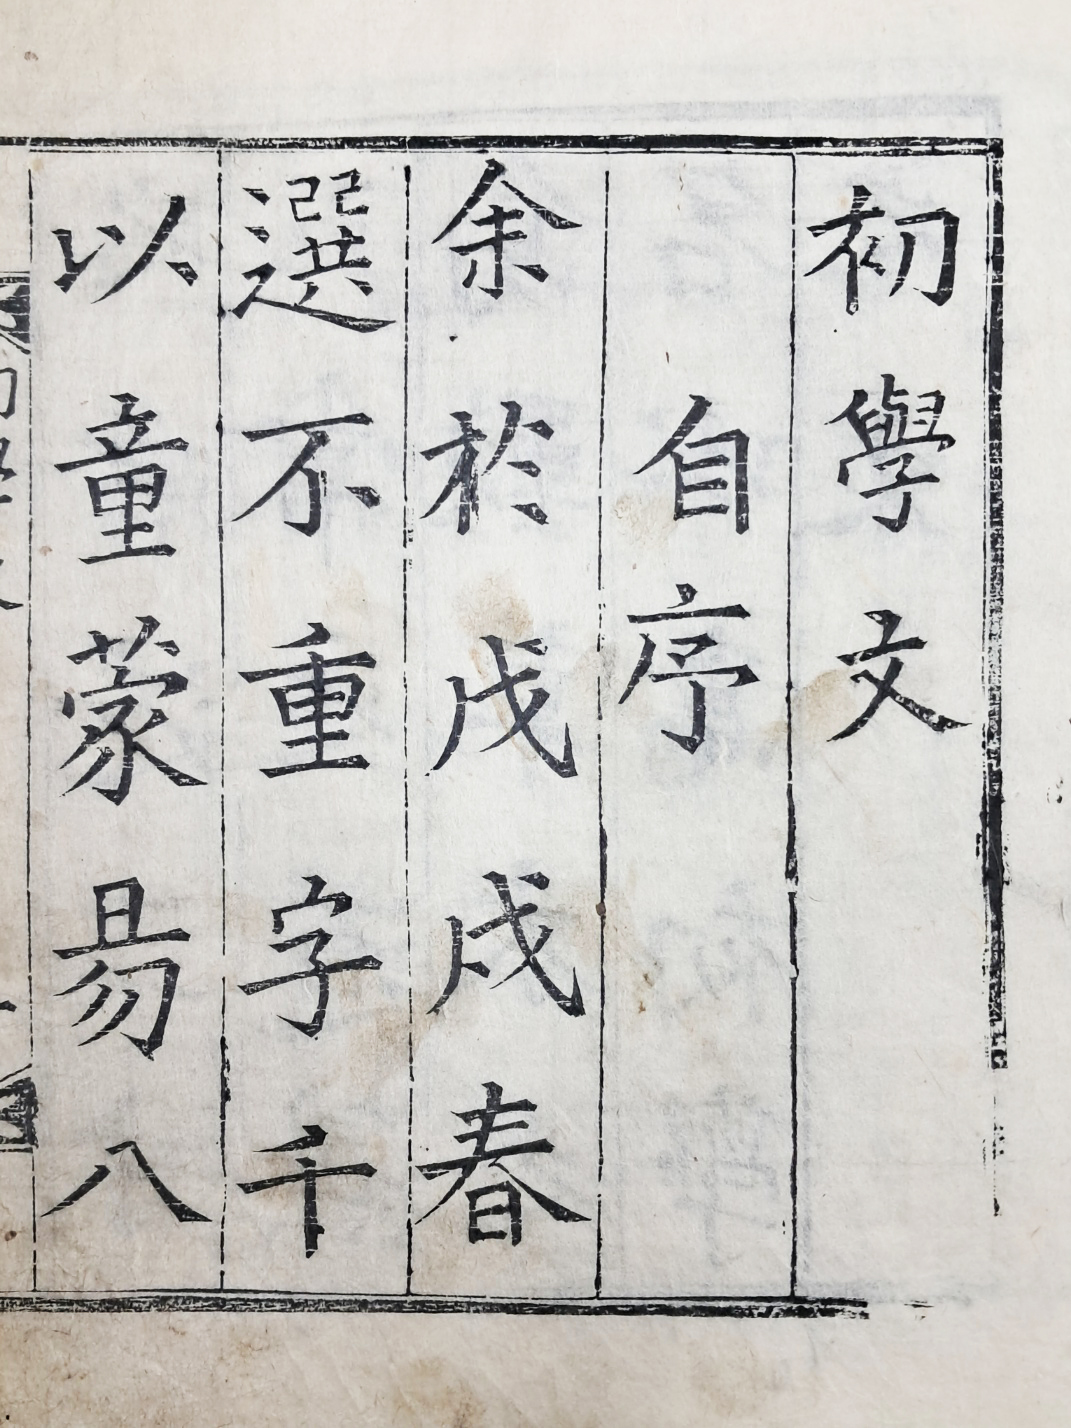 初學文
自序
余於戊戌春
選不重字千
以童蒙昜八